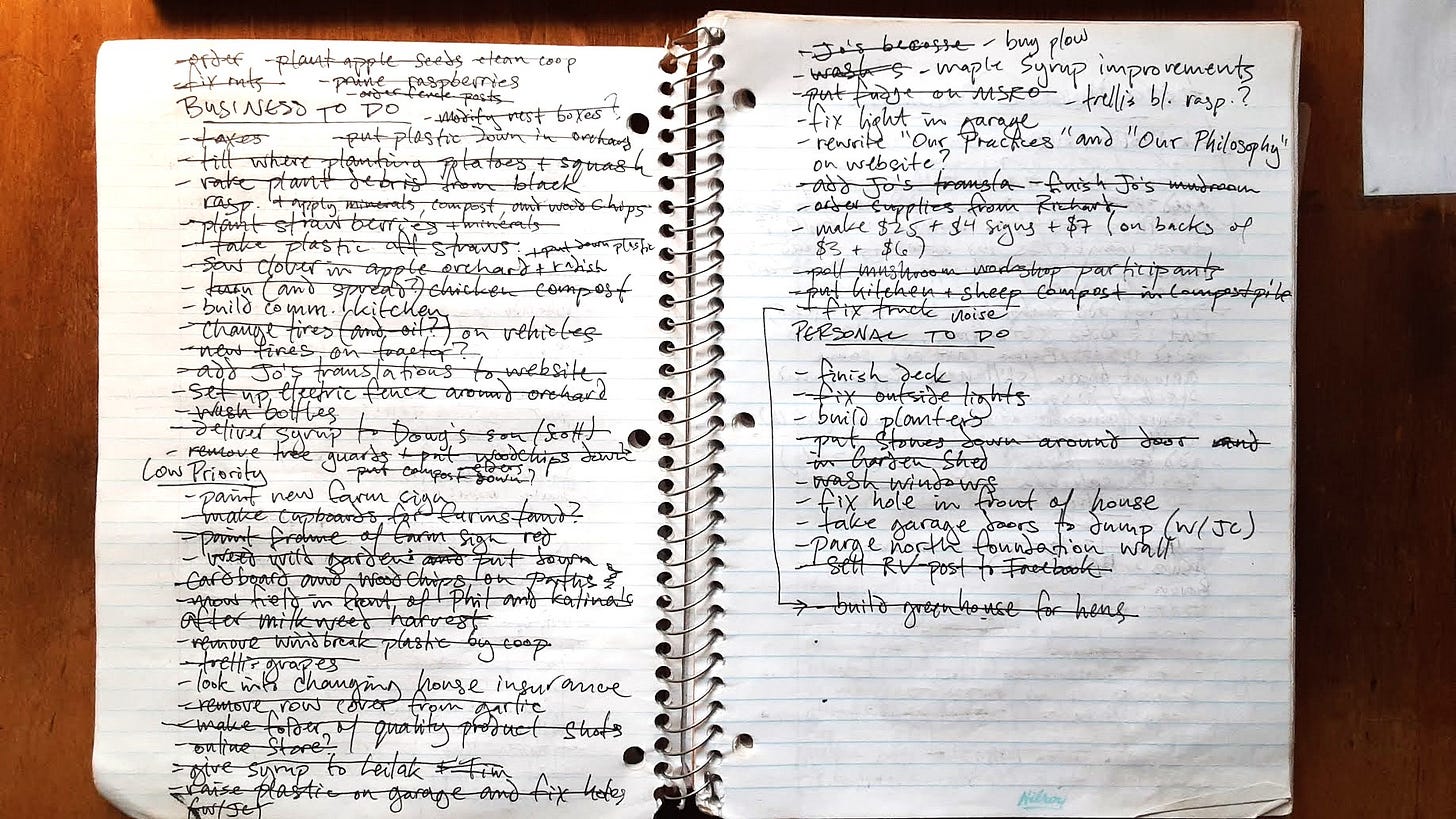 - order - plant apple seeds - clean coop
- fix nuts - prune raspberries
- order fence posts
BUSINESS TO DO - modify nest boxes?
- taxes - put plastic down in orchard
- till where planting potatoes + squash
- rake plant debris from black
rasp. + apply minerals, compost, and wood chips
- plant strawberries + minerals
- take plastic off straws. + put down plastic
- sow clover in apple orchard + radish
- turn (and spread?) chicken compost
- build comm. kitchen
- change tires (and oil?) on vehicles
- new tires on tractor?
- add Jo's translations to website
- set up electric fence around orchard
- wash bottles
- deliver syrup to Doug's son (Scott)
- remove tree guards + put woodchips down
Low Priority - put compost down?
- paint new farm sign
- make cupboards for farmstand?
- paint frame of farm sign red
- weed wild garden and put down
cardboard and woodchips on paths
- mow field in front of Phil and Katina's
after milkweed harvest
- remove windbreak plastic by coop
- trellis grapes
- look into changing house insurance
- remove row cover from garlic
- make folder of quality product shots
- online store?
- give syrup to Leilak + Tim
- raise plastic on garage and fix holes
(w/JC)
- Jo's - buy plow
- wash s - maple syrup improvements
- put fudge on MSRO - trellis bl. rasp.?
- fix light in garage
- rewrite "Our Practices" and "Our Philosophy"
on website?
- add Jo's transla - finish Jo's mudroom
- order supplies from Richard
- make $25 + $4 signs + $7 (on backs of
$3 + $6)
- poll mushroom workshop participants
- put kitchen + sheep compost in compost pile
- fix truck noise
PERSONAL TO DO
- finish deck
- fix outside lights
- build planters
- put stones down around door and
in garden shed
- wash windows
- fix hole in front of house
- take garage doors to dump (w/JC)
- parge north foundation wall
- sell RV - post to Facebook
→ - build greenhouse for hens
Hilroy